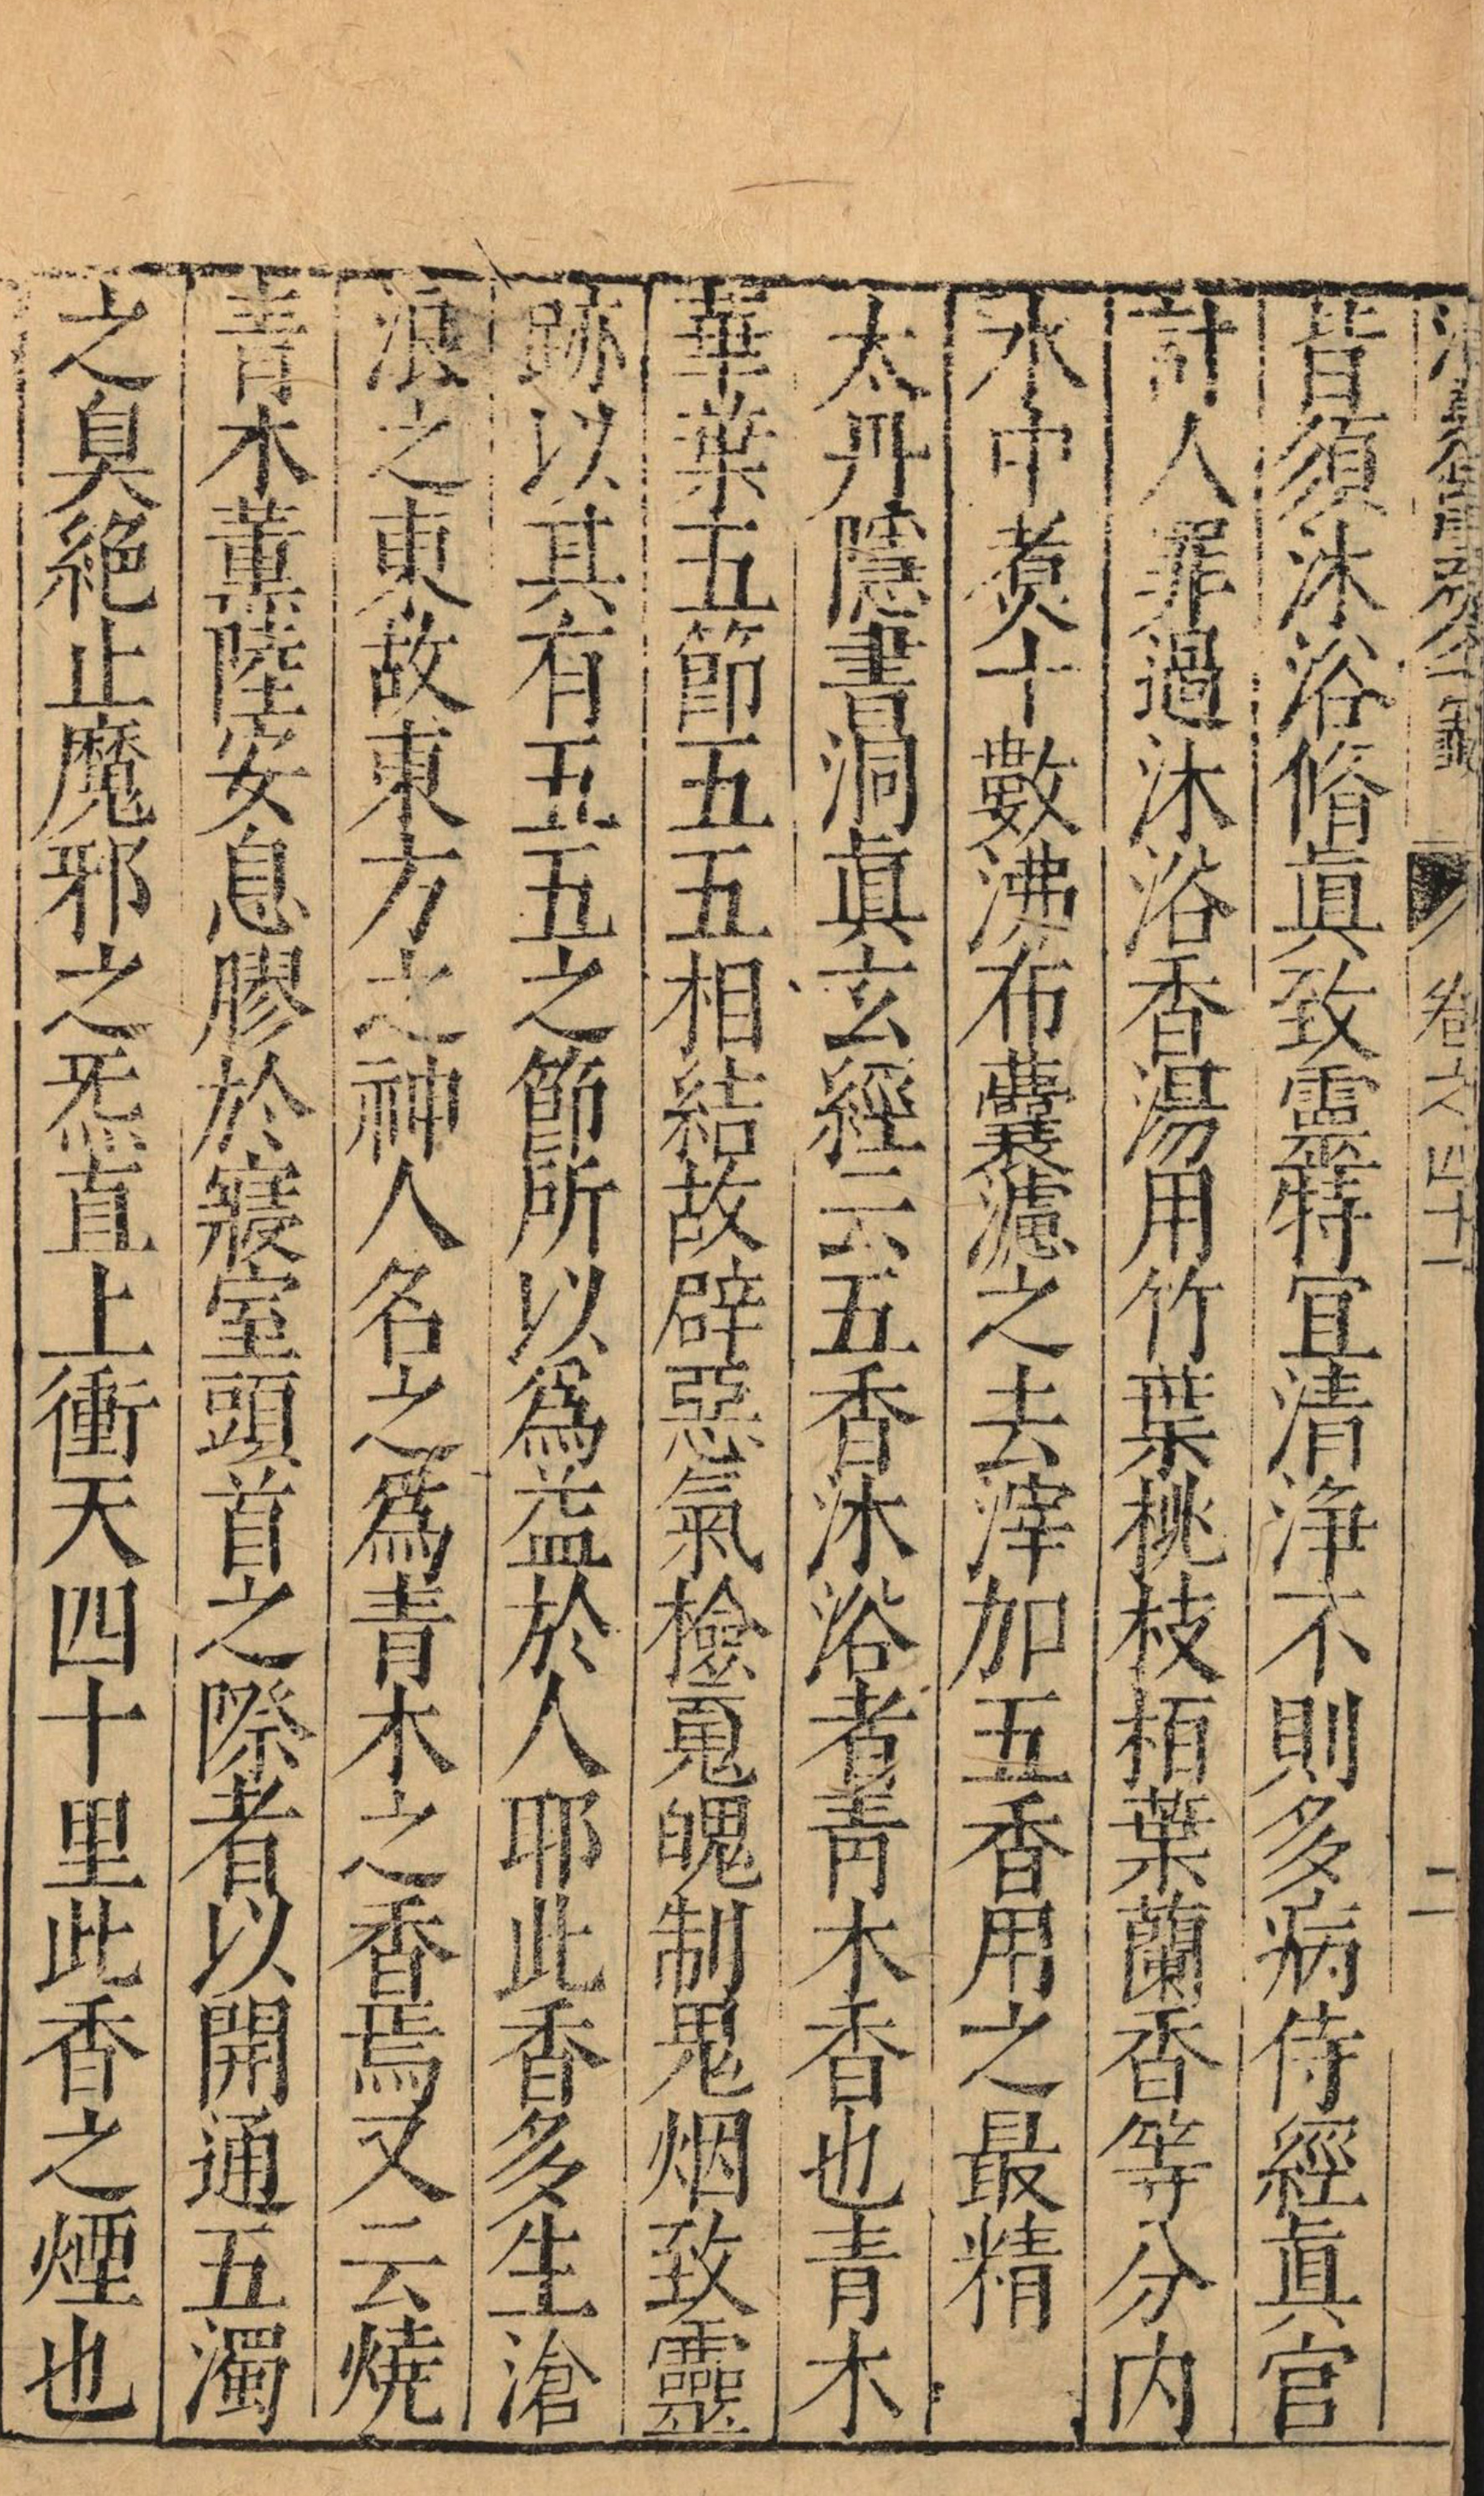 卷之四十一
二
皆須沐浴脩眞致靈特宜清淨不則多病侍經眞官
計人罪過沐浴香湯用竹葉桃枝栢葉蘭香等分内
水中煑十數沸布囊濾之去滓加五香用之最精
太丹隱書洞眞玄經云五香沐浴者青木香也青木
華葉五節五五相結故辟惡氣檢䰟魄制鬼烟致靈
跡以其有五五之節所以爲益於人耶此香多生滄
浪之東故東方之神人名之爲青木之香焉又云燒
青木薫陸安息膠於寢室頭首之際者以開通五濁
之臭絶止魔邪之炁直上衝天四十里此香之煙也